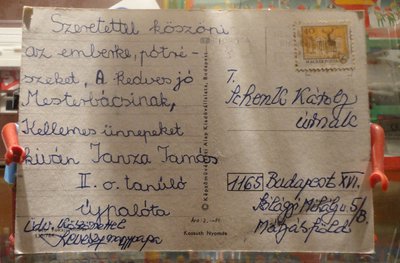 Szeretettel köszöni
az emberke, pótré-
szeket, A kedves jó
Mesterbácsinak,
Kellemes ünnepeket
kíván Tanza Tamás
II. o. tanúló
Újpalóta
Üdv.
T.
Schenk Károly
úrnak
1165 Budapest XVI.
Mihály u 5/B.
Mátyásföld
Képzőművészeti Alap Kiadóvállalata, Budapest
Ára: 2,- Ft
Kossuth Nyomda
MAGYAR POSTA